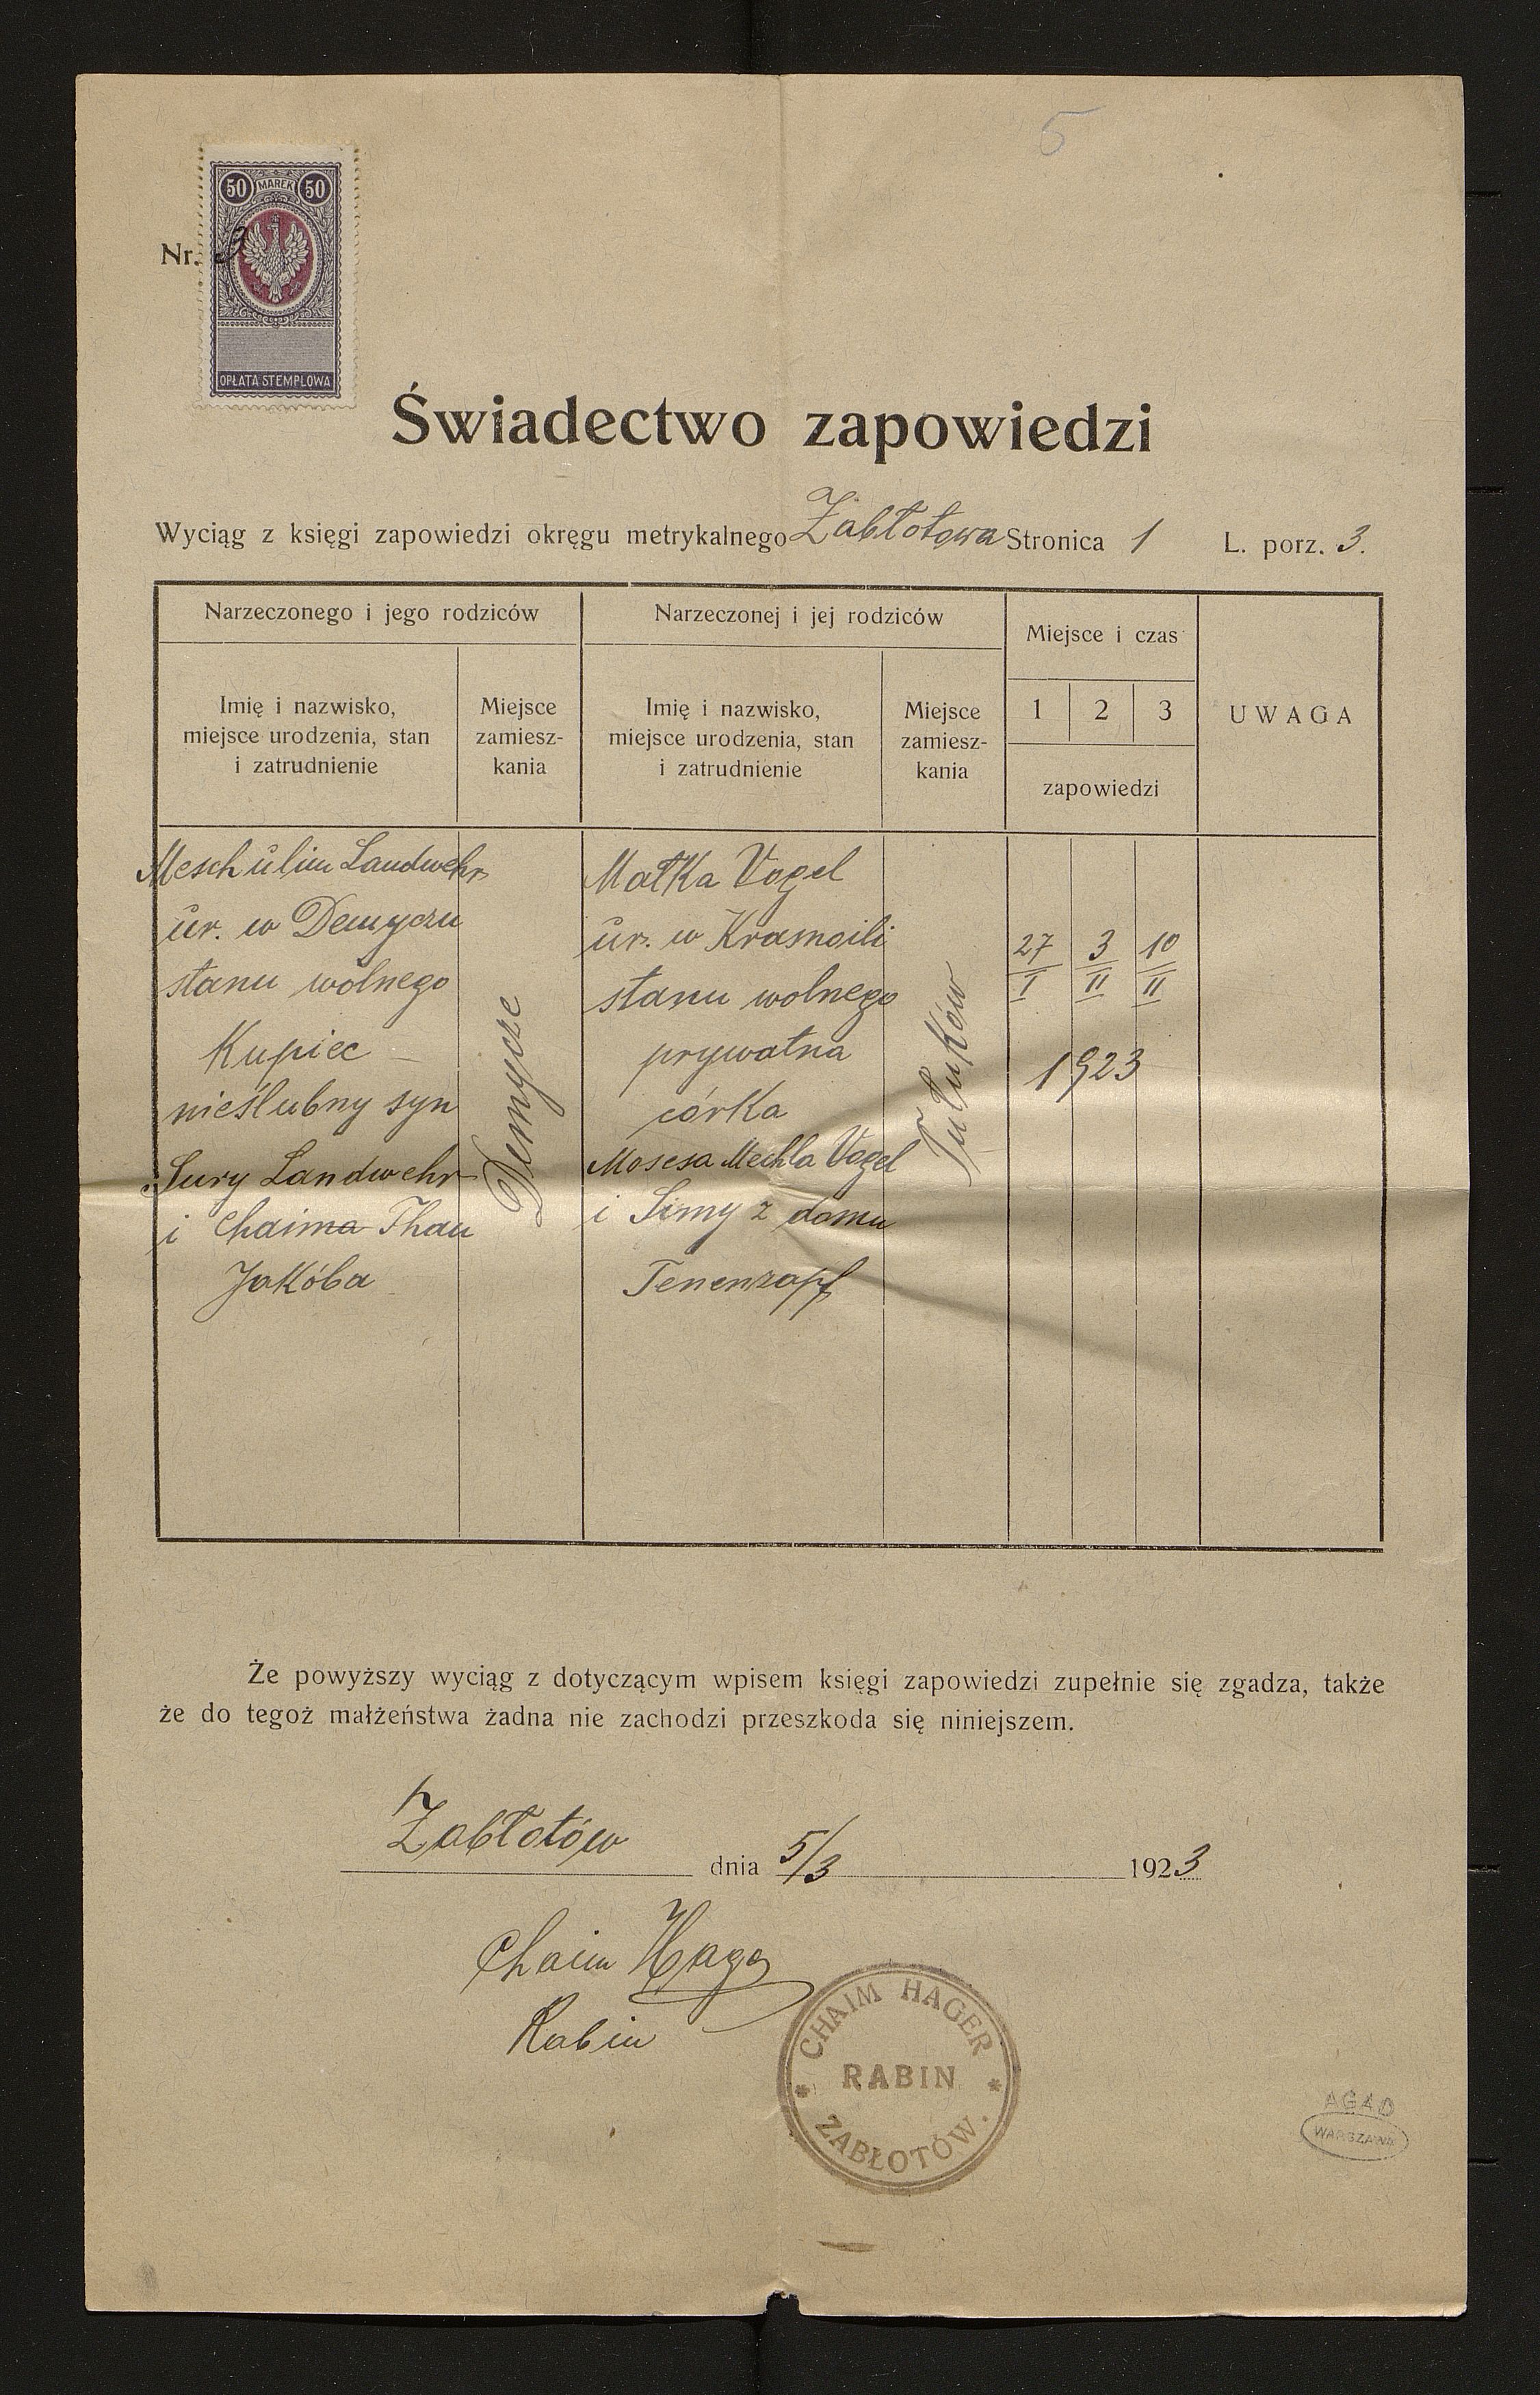 5
50 MAREK 50
Nr. 3
OPŁATA STEMPLOWA
Świadectwo zapowiedzi
Wyciąg z księgi zapowiedzi okręgu metrykalnego Zabłotowa Stronica 1 L. porz. 3.
Narzeczonego i jego rodziców
Imię i nazwisko,
miejsce urodzenia, stan
i zatrudnienie
Miejsce
zamiesz-
kania
Narzeczonej i jej rodziców
Imię i nazwisko,
miejsce urodzenia, stan
i zatrudnienie
Miejsce
zamiesz-
kania
Miejsce i czas
1 2 3
zapowiedzi
UWAGA
Meschulim Landwehr
ur. w Demyczu
stanu wolnego
Kupiec
nieślubny syn
Sury Landwehr
i Chaima Thau
Jakóba
Demycze
Małka Vogel
ur. w Krasnoili
stanu wolnego
prywatna
córka
Mosesa Mechla Vogel
i Simy z domu
Tenenzapf
Tułuków
27/I 3/II 10/II
1923
Że powyższy wyciąg z dotyczącym wpisem księgi zapowiedzi zupełnie się zgadza, także
że do tegoż małżeństwa żadna nie zachodzi przeszkoda się niniejszem.
Zabłotów dnia 5/3 1923
Chaim Hager
Rabin
CHAIM HAGER
RABIN
ZABŁOTÓW.
AGAD
WARSZAWA